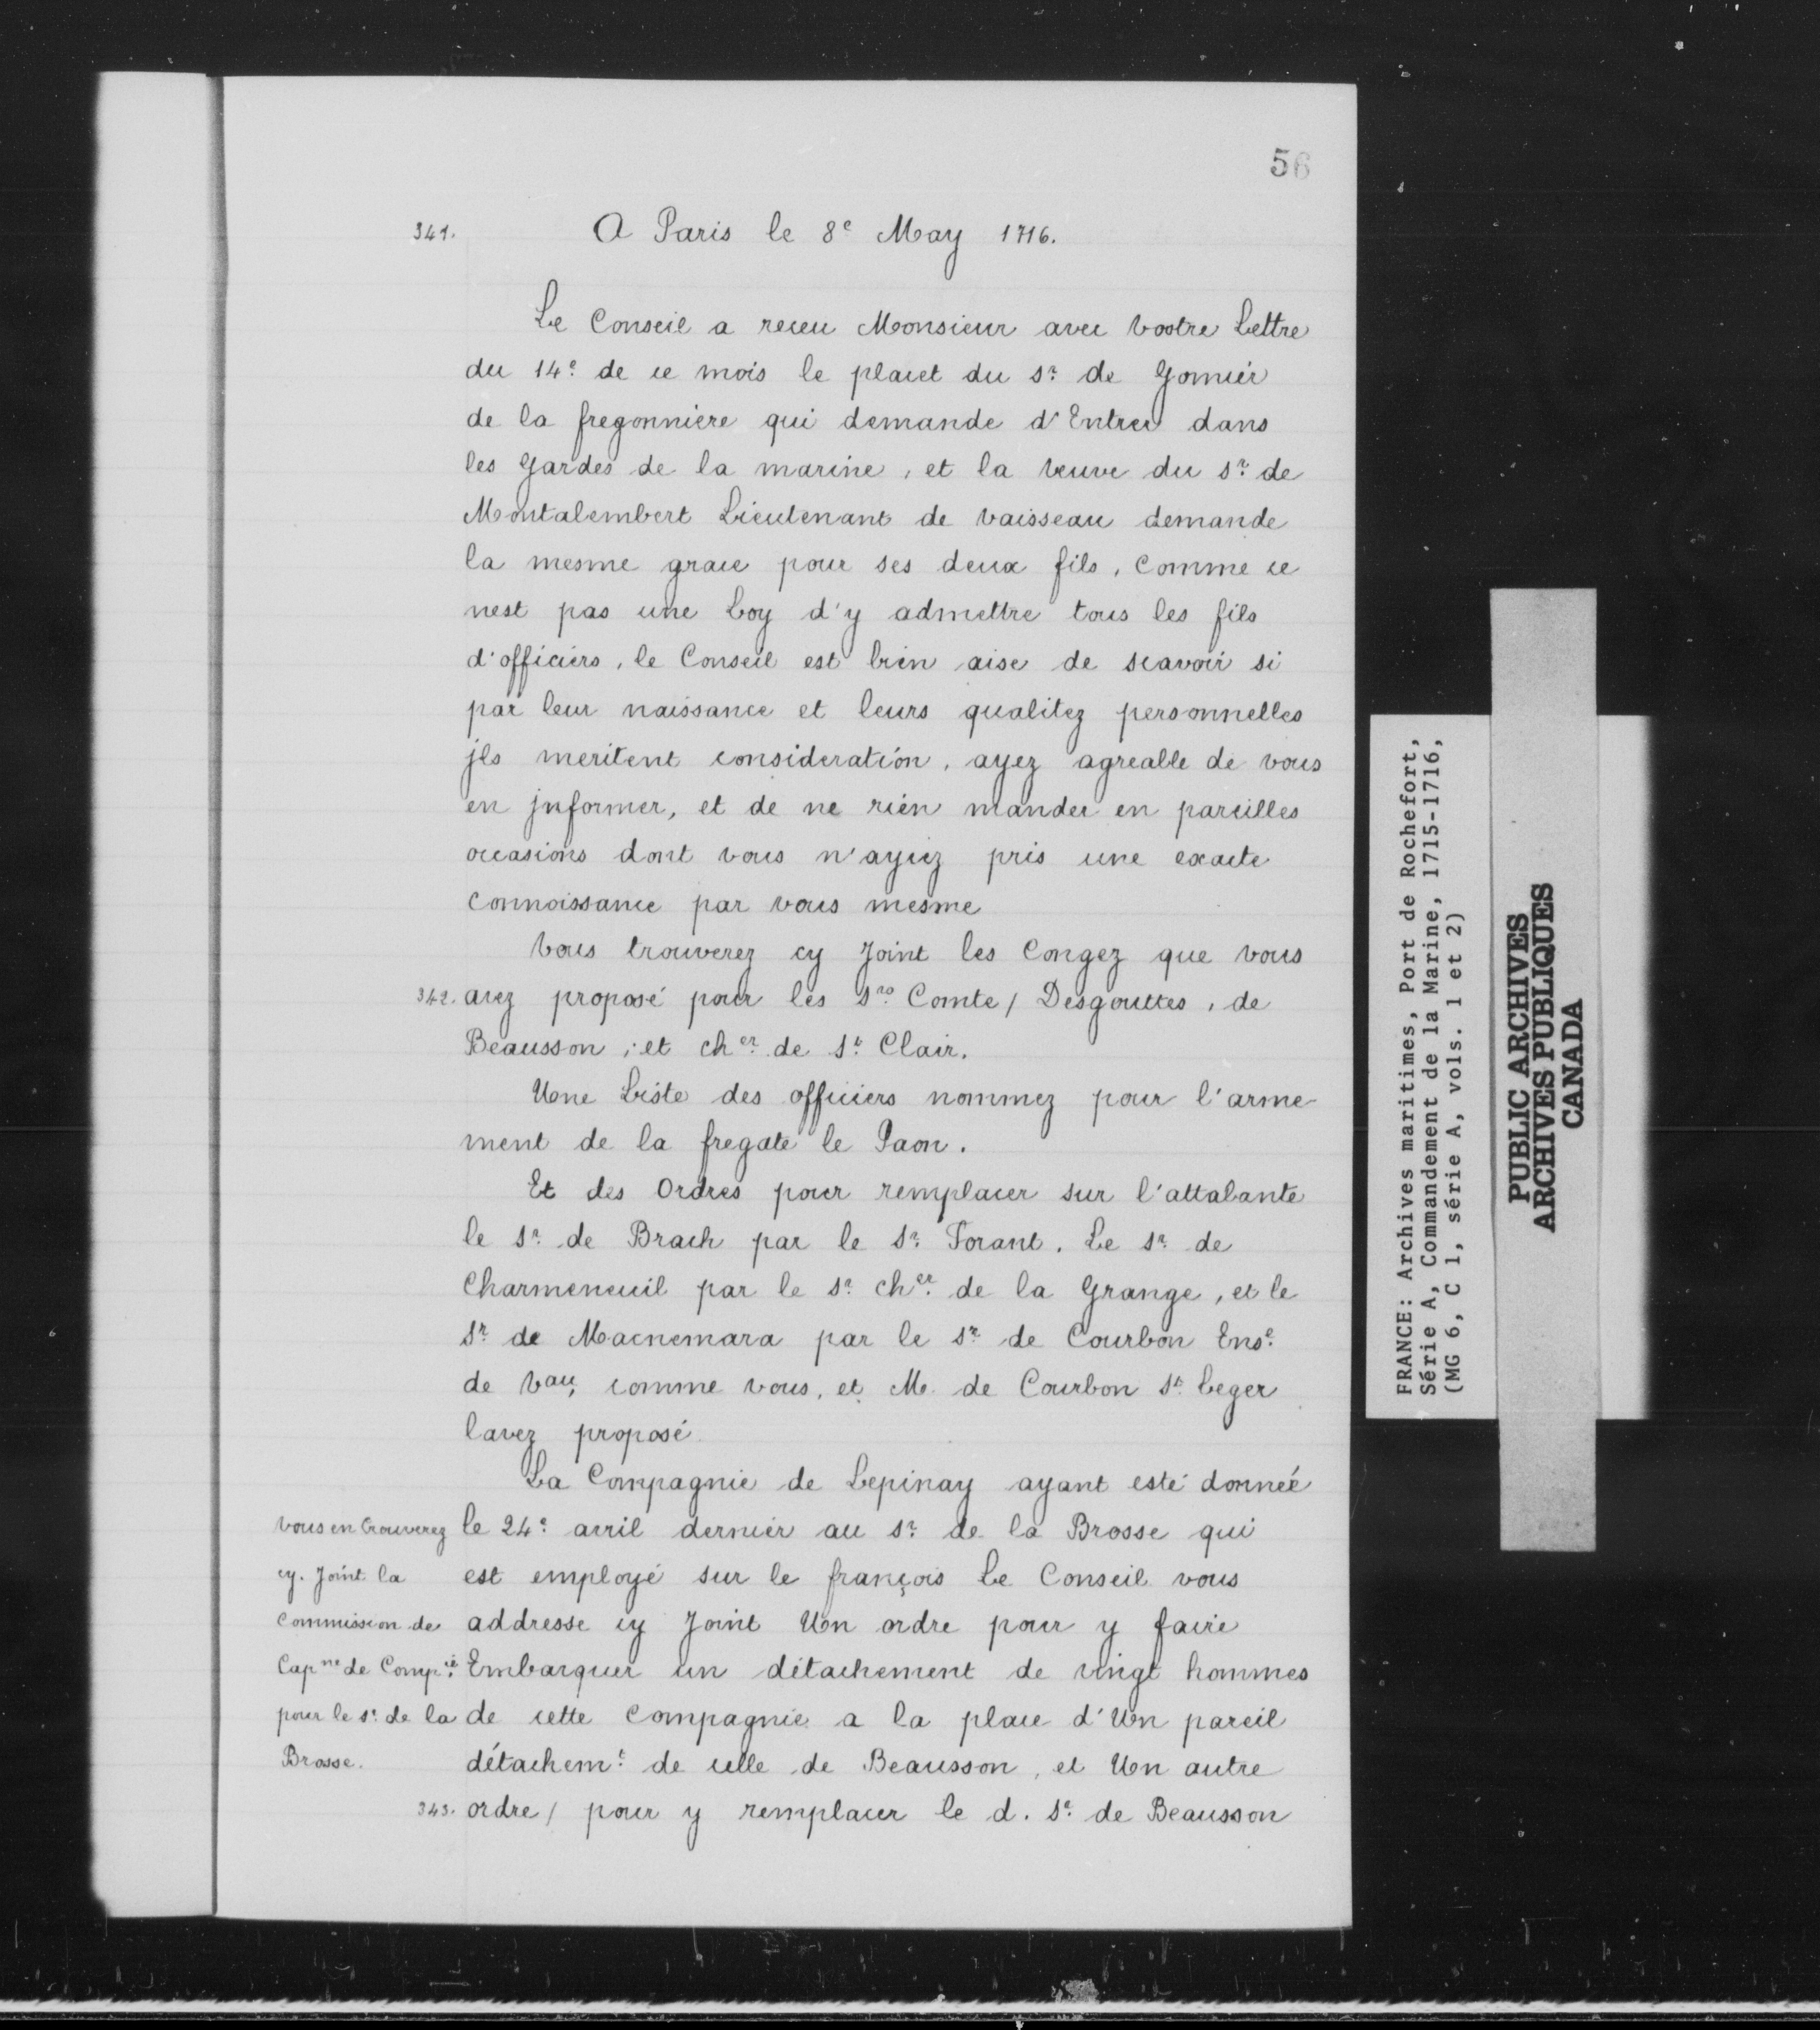 56
341. A Paris le 8e May 1716.
Le Conseil a receu Monsieur avec vostre Lettre
du 14e de ce mois le placet du Sr de Gomier
de la fregonniere qui demande d'Entrer dans
les Gardes de la marine, et la veuve du Sr de
Montalembert Lieutenant de vaisseau demande
la mesme grace pour ses deux fils, comme ce
nest pas une Loy d'y admettre tous les fils
d'officiers, le Conseil est bien aise de scavoir si
par leur naissance et leurs qualitez personnelles
jls meritent consideration, ayez agreable de vous
en jnformer, et de ne rien mander en pareilles
occasions dont vous n'ayiez pris une exacte
connoissance par vous mesme
Vous trouverez cy Joint les Congez que vous
342. avez proposé pour les Srs Comte / Desgouttes, de
Beausson, et cher de St Clair.
Une Liste des officiers nommez pour l'arme
ment de la fregate le Paon.
Et des Ordres pour remplacer sur l'attalante
le Sr de Brach par le Sr Forant. Le Sr de
Charmeneuil par le Sr cher de la Grange, et le
Sr de Macnemara par le Sr de Courbon Ense
de Vau, comme vous, et M. de Courbon St Leger
lavez proposé.
La Compagnie de Lepinay ayant esté donnée
le 24e avril dernier au Sr de la Brosse qui
est employé sur le françois Le Conseil vous
addresse cy Joint Un ordre pour y faire
Embarquer un détachement de vingt hommes
de cette Compagnie a la place d'Un pareil
détachemt de celle de Beausson, et Un autre
343. ordre / pour y remplacer le d. Sr de Beausson
Vous en trouverez
cy. Joint la
Commission de
Capne de Compie
pour le Sr de la
Brosse.
FRANCE: Archives maritimes, Port de Rochefort,
Série A, Commandement de la Marine, 1715-1716,
(MG 6, C 1, série A, vols. 1 et 2)
PUBLIC ARCHIVES
ARCHIVES PUBLIQUES
CANADA